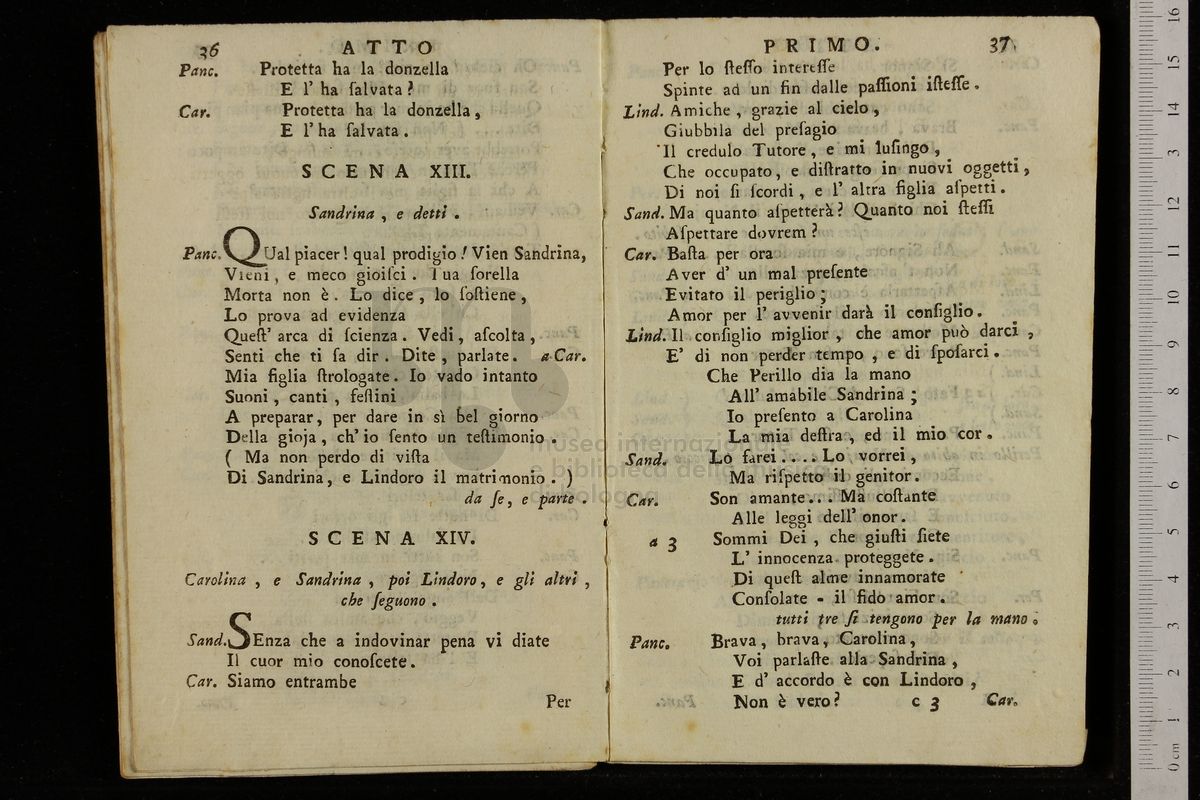 36 ATTO
Panc. Protetta ha la donzella
E l' ha ſalvata?
Car. Protetta ha la donzella,
E l' ha ſalvata.
SCENA XIII.
Sandrina, e detti.
Panc. QUal piacer! qual prodigio! Vien Sandrina,
Vieni, e meco gioiſci. Tua ſorella
Morta non è. Lo dice, lo ſoſtiene,
Lo prova ad evidenza
Queſt' arca di ſcienza. Vedi, aſcolta,
Senti che ti ſa dir. Dite, parlate. a Car.
Mia figlia ſtrologate. Io vado intanto
Suoni, canti, feſtini
A preparar, per dare in sì bel giorno
Della gioja, ch' io ſento un teſtimonio.
( Ma non perdo di viſta
Di Sandrina, e Lindoro il matrimonio. )
da ſe, e parte.
SCENA XIV.
Carolina, e Sandrina, poi Lindoro, e gli altri,
che ſeguono.
Sand. SEnza che a indovinar pena vi diate
Il cuor mio conoſcete.
Car. Siamo entrambe
Per
PRIMO. 37
Per lo ſteſſo intereſſe
Spinte ad un fin dalle paſſioni iſteſſe.
Lind. Amiche, grazie al cielo,
Giubbila del preſagio
Il credulo Tutore, e mi luſingo,
Che occupato, e diſtratto in nuovi oggetti,
Di noi ſi ſcordi, e l' altra figlia aſpetti.
Sand. Ma quanto aſpetterà? Quanto noi ſteſſi
Aſpettare dovrem?
Car. Baſta per ora
Aver d' un mal preſente
Evitato il periglio;
Amor per l' avvenir darà il conſiglio.
Lind. Il conſiglio miglior, che amor può darci,
E' di non perder tempo, e di ſpoſarci.
Che Perillo dia la mano
All' amabile Sandrina;
Io preſento a Carolina
La mia deſtra, ed il mio cor.
Sand. Lo farei.... Lo vorrei,
Ma riſpetto il genitor.
Car. Son amante... Ma coſtante
Alle leggi dell' onor.
a 3 Sommi Dei, che giuſti ſiete
L' innocenza proteggete.
Di queſt alme innamorate
Conſolate - il fido amor.
tutti tre ſi tengono per la mano.
Panc. Brava, brava, Carolina,
Voi parlaſte alla Sandrina,
E d' accordo è con Lindoro,
Non è vero? c 3 Car.
museo internazionale
e biblioteca della musica